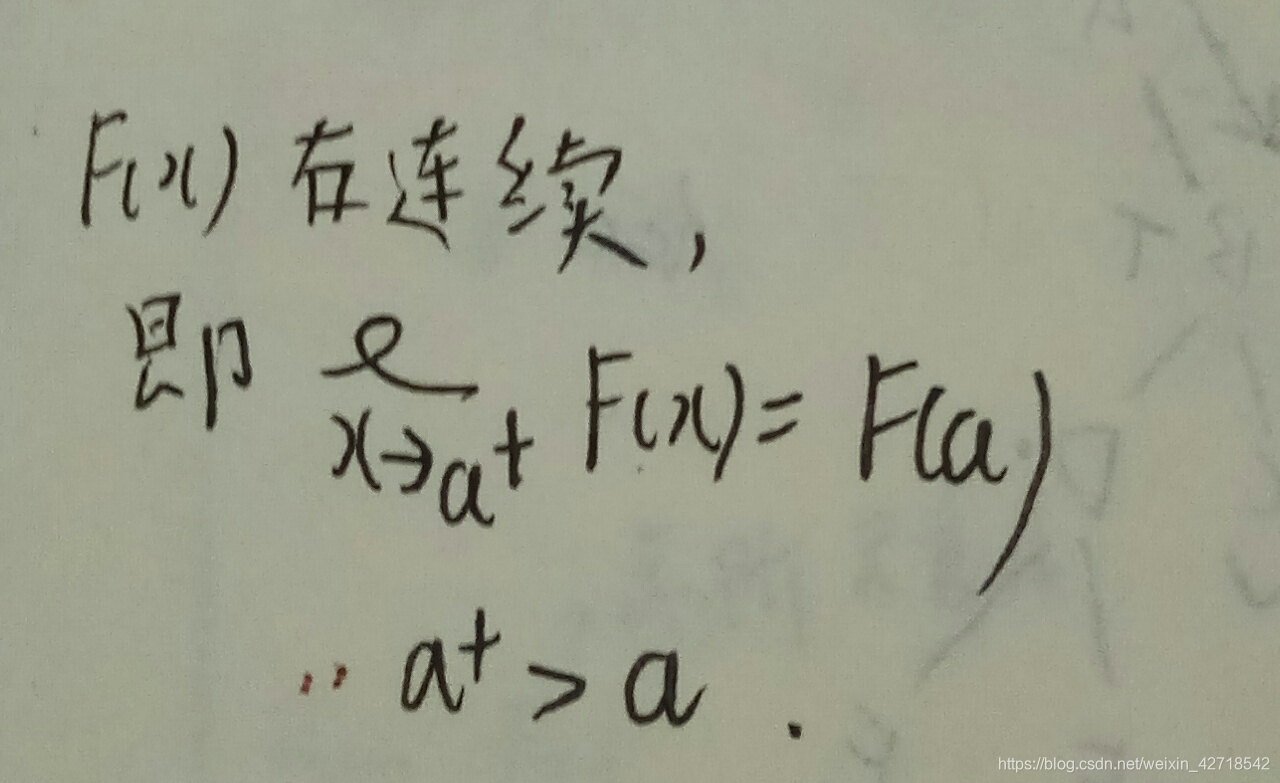 F(x) 右连续,
即 l x→a⁺ F(x) = F(a)
a⁺ > a .
https://blog.csdn.net/weixin_42718542